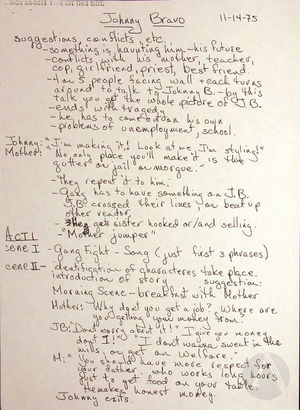 TYPE ON THIS SIDE.
Johnny Bravo 11-14-75
suggestions, conflicts, etc.
- something is haunting him - his future
- conflicts with his mother, teacher,
cop, girlfriend, priest, best friend.
- 4 or 5 people facing wall + each turns
around to talk to Johnny B. - by this
talk you get the whole picture of J.B.
- ends with tragedy
- he has to come out on his own
- problems of unemployment, school.
Johnny: "I'm making it! Look at me, I'm styling!"
Mother: "No, only place you'll make it is the
gutter or jail or morgue."
- They repeat it to him.
- Gang has to have something on J.B.
J.B. crossed their lines or beat up
other vendor,
They get sister hooked or/and selling.
- "Mother jumper"
ACT I
cene I - Gang Fight - Song (just first 3 phrases)
cene II - identification of characters take place.
introduction of story suggestion:
Morning Scene - breakfast with Mother
Mother: Why don't you get a job? Where are
you getting your money from?
JB: "Don't worry about it!" I give you money
don't I!" "I don't wanna sweat in the
mills, or get on welfare."
M: "You should have more respect for
your father, who works long hours
just to get food on your table.
He makes honest money.
Johnny exits.